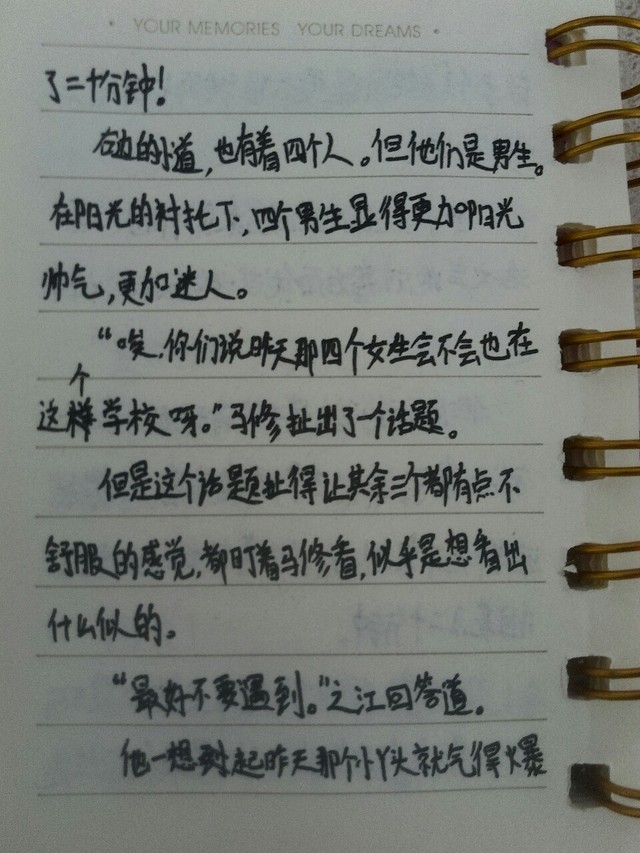 • YOUR MEMORIES YOUR DREAMS •
了二十分钟！
右边的小道，也有着四个人。但他们是男生。
在阳光的衬托下，四个男生显得更加阳光
帅气，更加迷人。
“唉，你们说昨天那四个女生会不会也在
个
这样学校呀。”马修扯出了一个话题。
但是这个话题扯得让其余三个都有点不
舒服的感觉，都盯着马修看，似乎是想看出
什么似的。
“最好不要遇到。”之江回答道。
他一想起昨天那个小丫头就气得爆